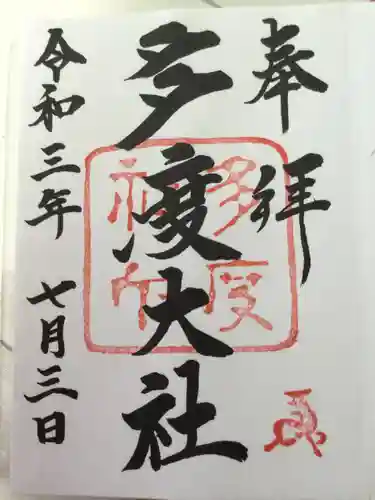 奉拝
多度大社
令和三年 七月三日
多度